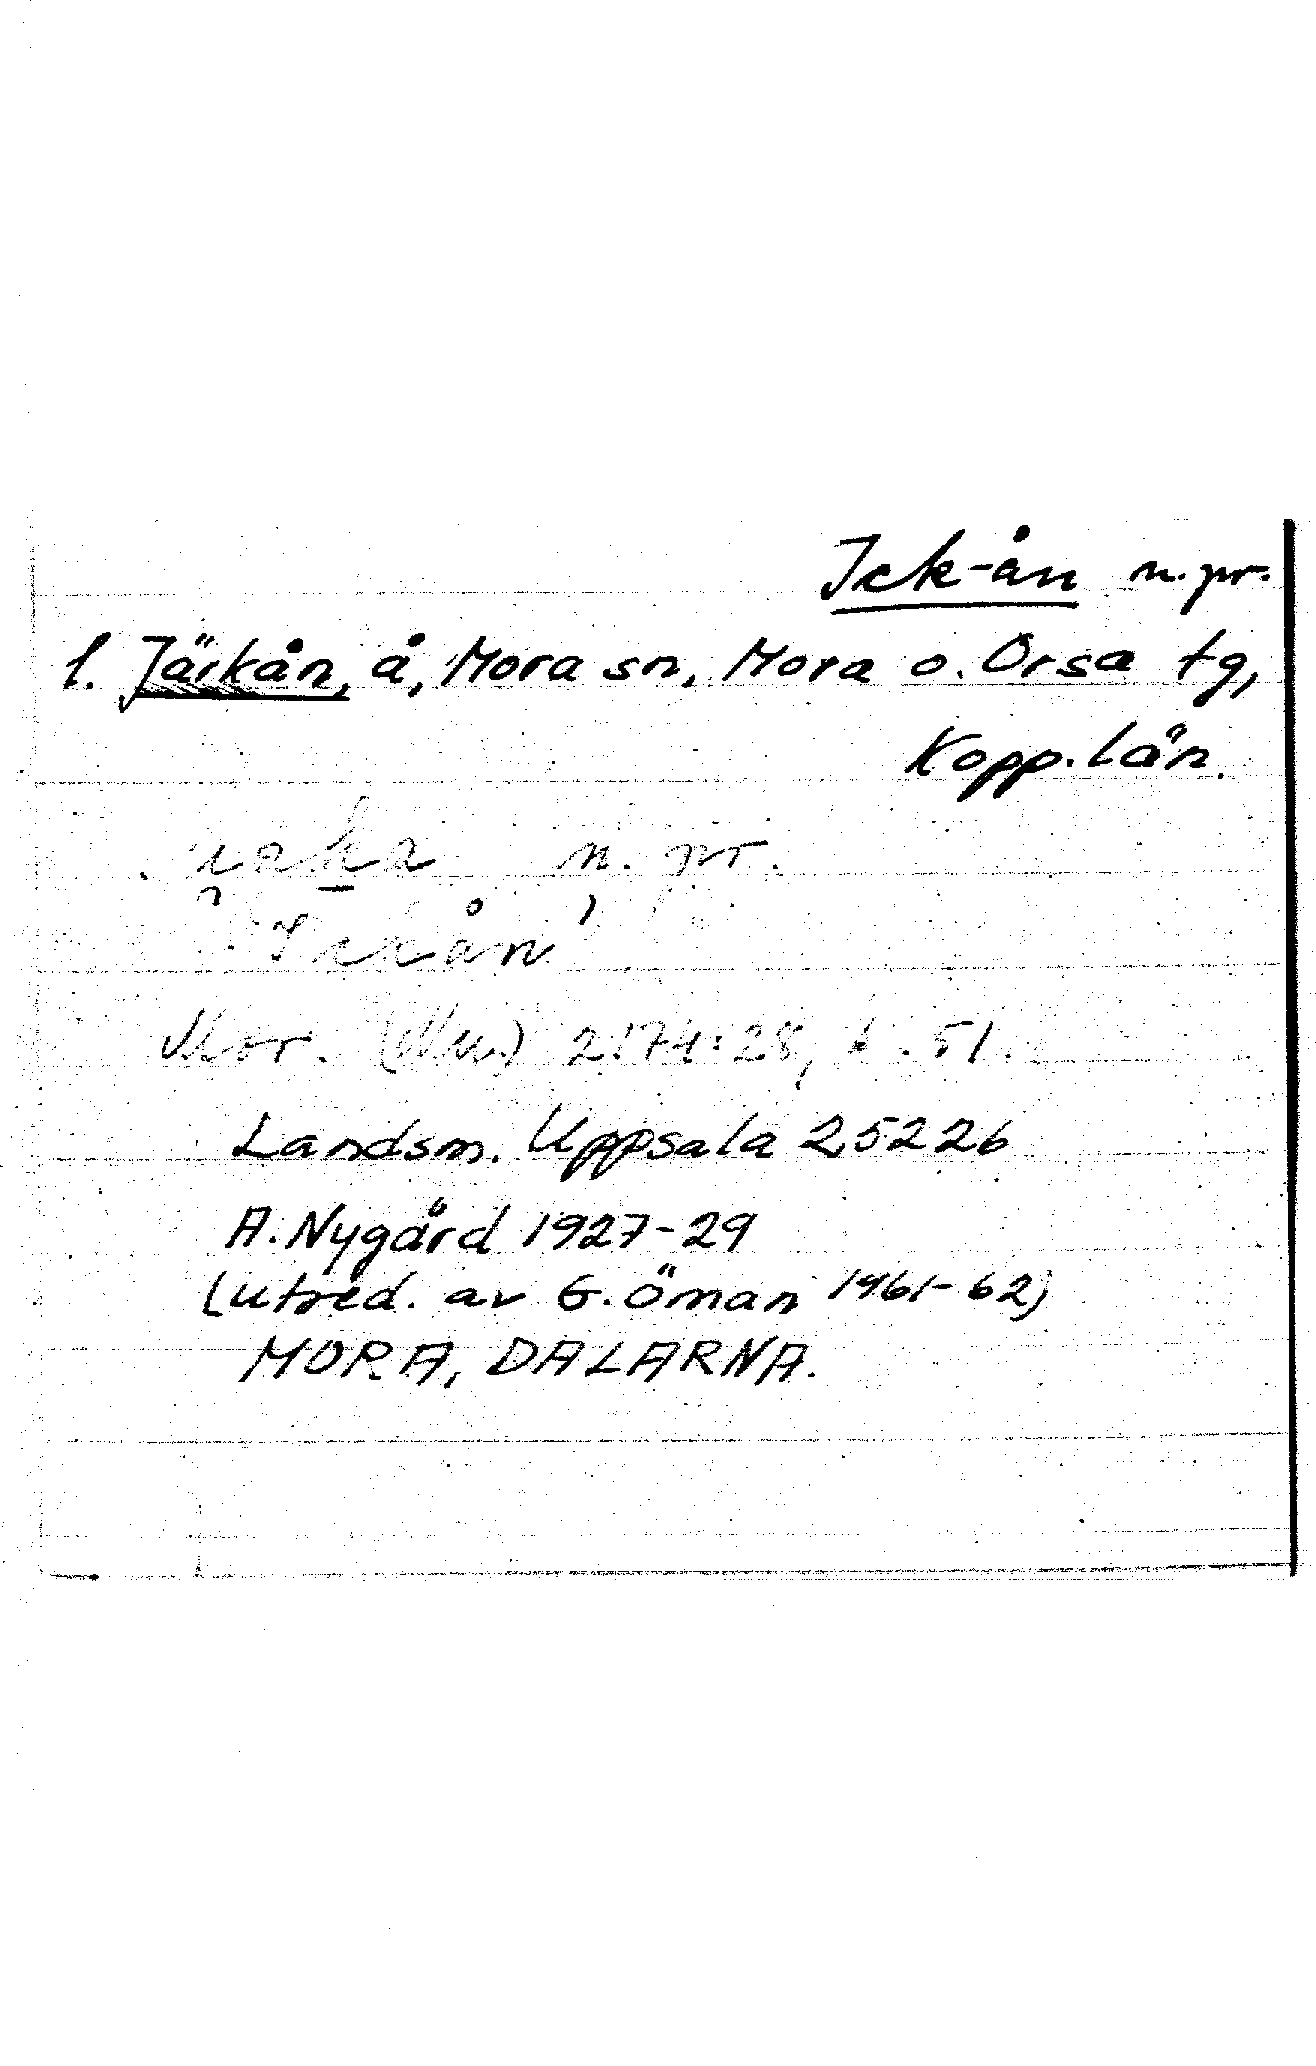 Ick-ån n.pr.
l. Järkån, å, Mora sn, Mora o. Orsa tg,
Kopp.län.
n. pr.
'Ickån'
Mor. 2174:28, 51.
Landsm. Uppsala 25226
A. Nygård 1927-29
(utred. av G. Öman 1961-62)
MORA, DALARNA.